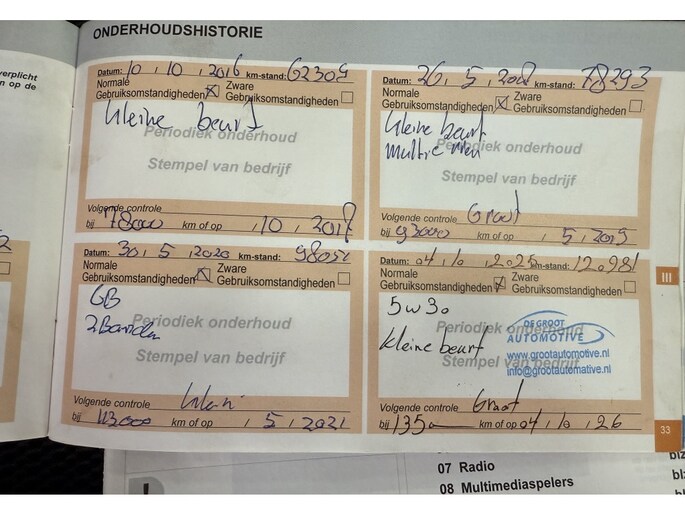 ONDERHOUDSHISTORIE
verplicht
en op de
Datum: 10, 10, 2016 km-stand: 62309
Normale Gebruiksomstandigheden
Zware Gebruiksomstandigheden
Kleine beurt
Periodiek onderhoud
Stempel van bedrijf
Volgende controle
bij 78000 km of op , 10 , 2017
Datum: 26, 5, 2018 km-stand: 78293
Normale Gebruiksomstandigheden
Zware Gebruiksomstandigheden
Kleine beurt
Periodiek onderhoud
Stempel van bedrijf
Volgende controle Groot
bij 93000 km of op , 5, 2019
Datum: 30, 5, 2020 km-stand: 98051
Normale Gebruiksomstandigheden
Zware Gebruiksomstandigheden
GB
2 Banden
Periodiek onderhoud
Stempel van bedrijf
Volgende controle
bij 113000 km of op , 5, 2021
Datum: 04, 10, 2025 km-stand: 12.981
Normale Gebruiksomstandigheden
Zware Gebruiksomstandigheden
5w30
Kleine beurt
Periodiek onderhoud
Stempel van bedrijf
DE GROOT
AUTOMOTIVE
www.grootautomotive.nl
info@grootautomotive.nl
Volgende controle Groot
bij 135 km of op 04, 10, 26
III
33
07 Radio
08 Multimediaspelers